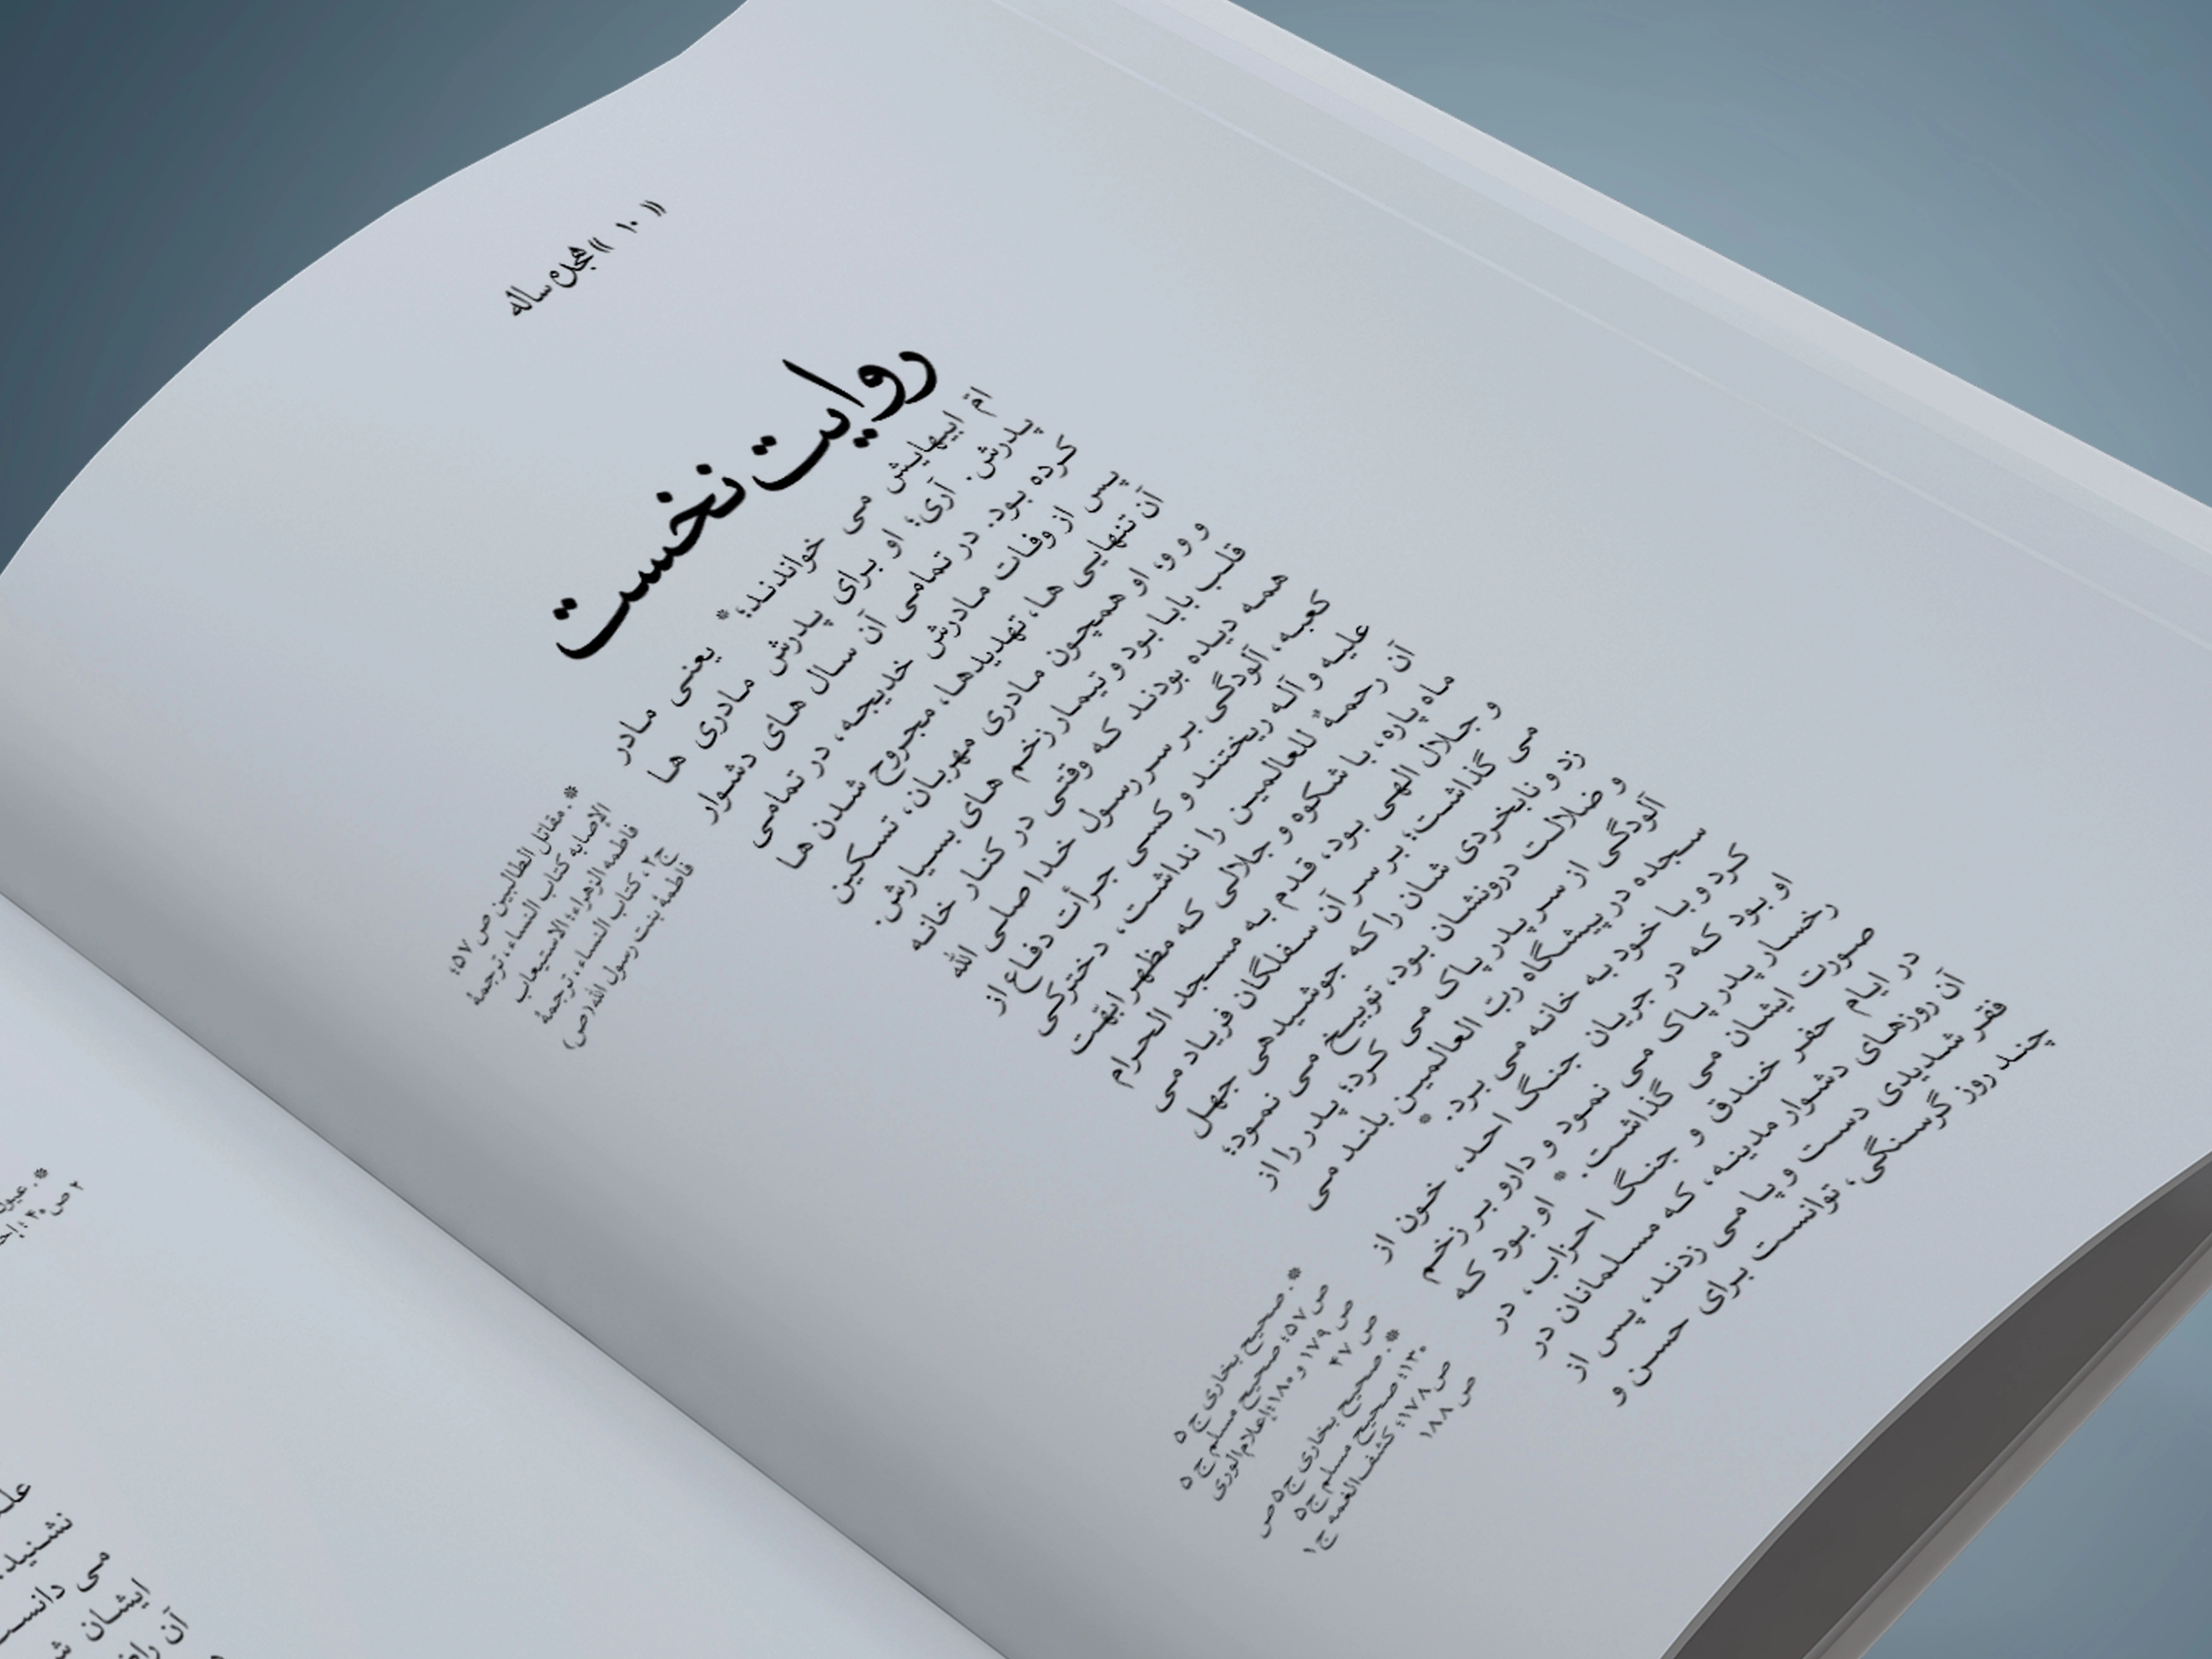 (( ۱۰ )) هجده ساله
روایت نخست
امّ ابیهایش می خواندند؛ * یعنی مادر
پدرش. آری؛ او برای پدرش مادری ها
کرده بود. در تمامی آن سال های دشوار
پس از وفات مادرش خدیجه، در تمامی
آن تنهایی ها، تهدیدها، مجروح شدن ها
و و و، او همچون مادری مهربان، تسکین
قلب بابا بود و تیمار زخم های بسیارش.
همه دیده بودند که وقتی در کنار خانه
کعبه، آلودگی بر سر رسول خدا صلی الله
علیه و آله ریختند و کسی جرأت دفاع از
آن رحمةً للعالمین را نداشت، دخترکی
ماه پاره، با شکوه و جلالی که مظهر ابهّت
و جلال الهی بود، قدم به مسجد الحرام
می گذاشت؛ بر سر آن سفلگان فریاد می
زد و نابخردی شان را که جوشیدهی جهل
و ضلالت درونشان بود، توبیخ می نمود؛
آلودگی از سر پدر پاک می کرد؛ پدر را از
سجده در پیشگاه ربّ العالمین بلند می
کرد و با خود به خانه می برد. *
او بود که در جریان جنگ احد، خون از
رخسار پدر پاک می نمود و دارو بر زخم
صورت ایشان می گذاشت. * او بود که
در ایام حفر خندق و جنگ احزاب، در
آن روزهای دشوار مدینه، که مسلمانان در
فقر شدیدی دست و پا می زدند، پس از
چند روز گرسنگی، توانست برای حسن و
*. مقاتل الطالبین ص ۵۷؛
الإصابه کتاب النساء، ترجمهٔ
فاطمه الزهراء؛ الاستیعاب
ج۲، کتاب النساء، ترجمهٔ
فاطمهٔ بنت رسول الله(ص)
*. صحیح بخاری ج ۵
ص ۵۷؛ صحیح مسلم ج ۵
ص ۱۷۹ و ۱۸۰؛ إعلام الوری
ص ۴۷
*. صحیح بخاری ج ۵ ص
۱۳۰؛ صحیح مسلم ج ۵
ص ۱۷۸؛ کشف الغمه ج ۱
ص ۱۸۸
*. عیون
۲ ص ۳۰
می دانست
ایشان
آن را